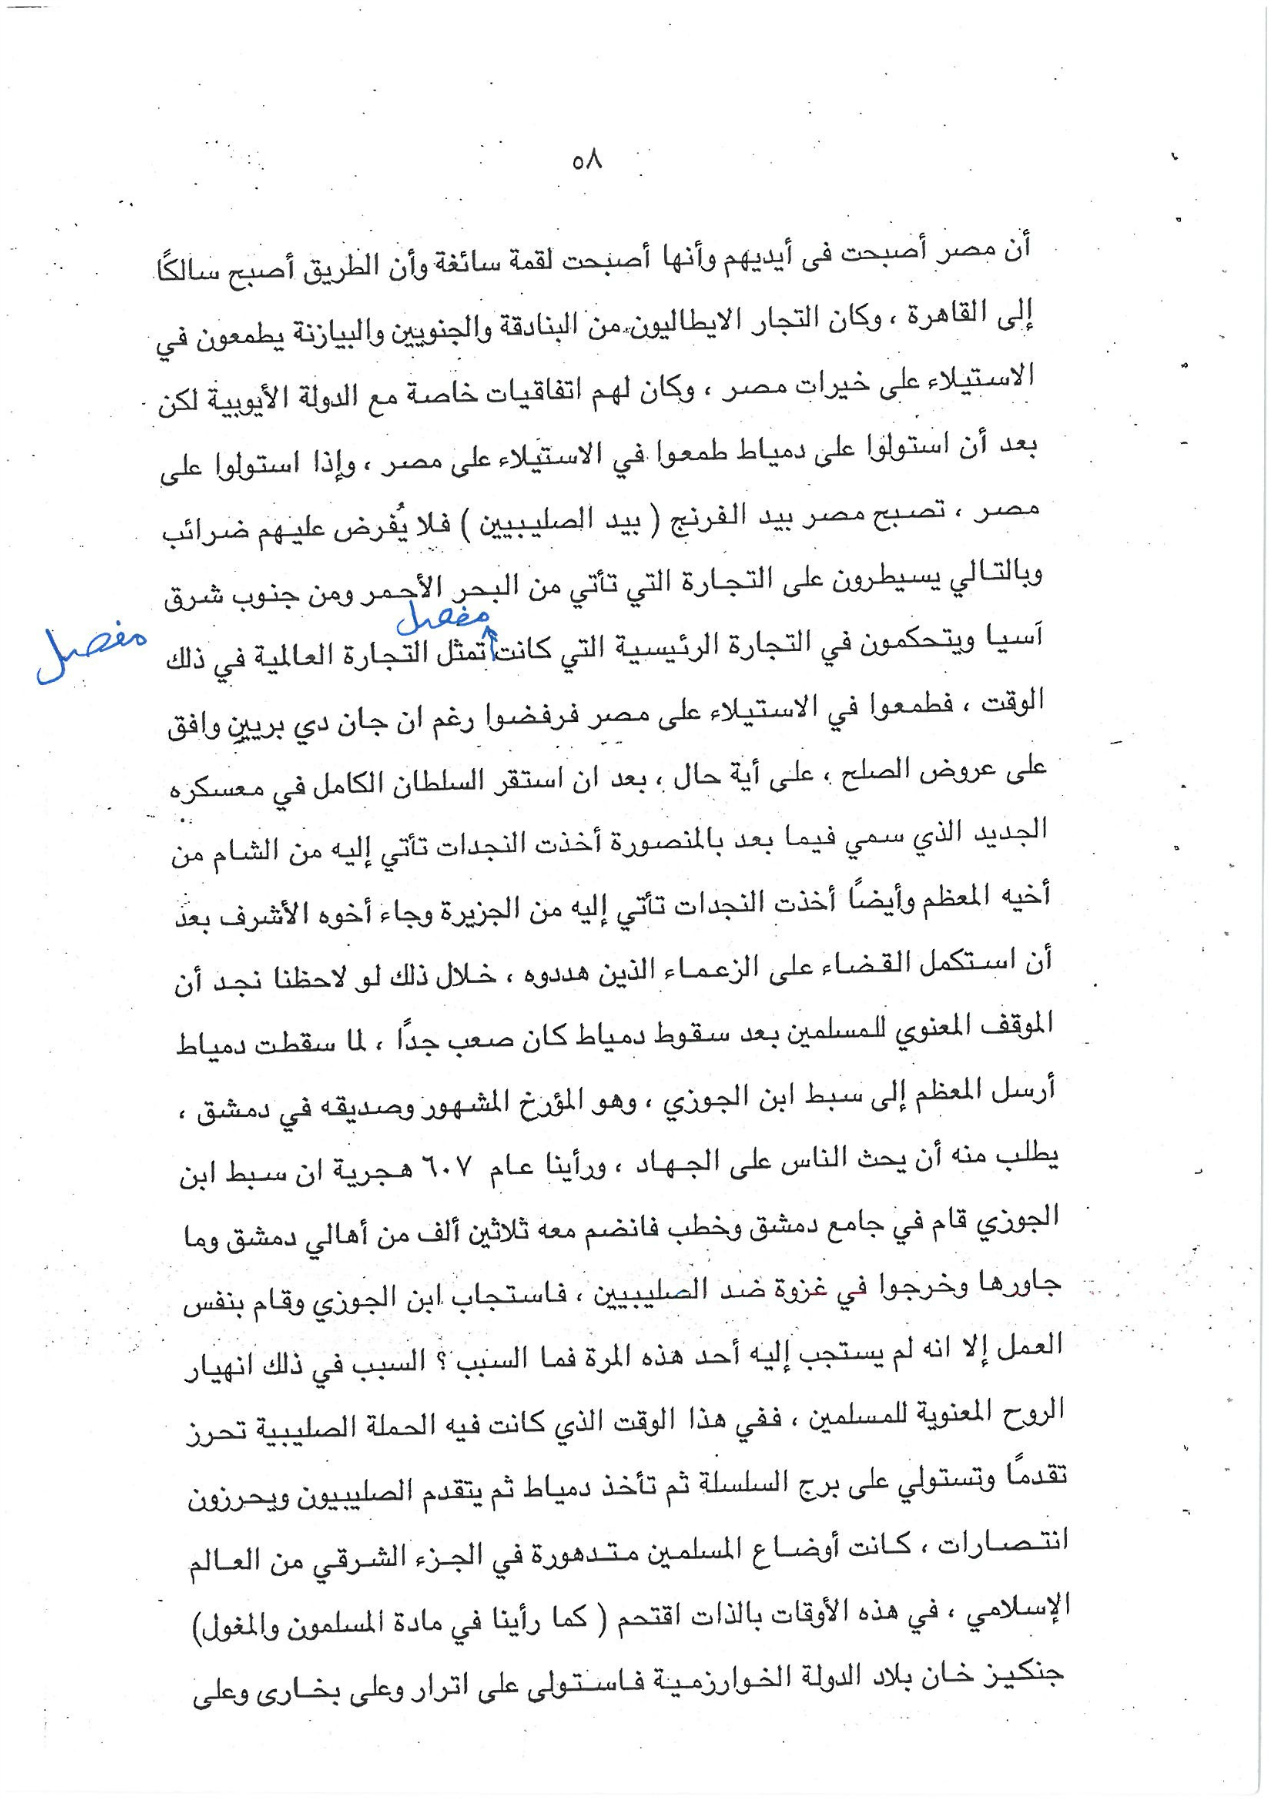 ٥٨
أن مصر أصبحت فى أيديهم وأنها أصبحت لقمة سائغة وأن الطريق أصبح سالكًا
إلى القاهرة ، وكان التجار الايطاليون من البنادقة والجنويين والبيازنة يطمعون في
الاستيلاء على خيرات مصر ، وكان لهم اتفاقيات خاصة مع الدولة الأيوبية لكن
بعد أن استولوا على دمياط طمعوا في الاستيلاء على مصر ، وإذا استولوا على
مصر ، تصبح مصر بيد الفرنج ( بيد الصليبيين ) فلا يُفرض عليهم ضرائب
وبالتالي يسيطرون على التجارة التي تأتي من البحر الأحمر ومن جنوب شرق
مفصل
مفصل
آسيا ويتحكمون في التجارة الرئيسية التي كانت تمثل التجارة العالمية في ذلك
الوقت ، فطمعوا في الاستيلاء على مصر فرفضوا رغم ان جان دي بريين وافق
على عروض الصلح ، على أية حال ، بعد ان استقر السلطان الكامل في معسكره
الجديد الذي سمي فيما بعد بالمنصورة أخذت النجدات تأتي إليه من الشام من
أخيه المعظم وأيضًا أخذت النجدات تأتي إليه من الجزيرة وجاء أخوه الأشرف بعد
أن استكمل القضاء على الزعماء الذين هددوه ، خلال ذلك لو لاحظنا نجد أن
الموقف المعنوي للمسلمين بعد سقوط دمياط كان صعب جدًا ، لما سقطت دمياط
أرسل المعظم إلى سبط ابن الجوزي ، وهو المؤرخ المشهور وصديقه في دمشق ،
يطلب منه أن يحث الناس على الجهاد ، ورأينا عام ٦٠٧ هجرية ان سبط ابن
الجوزي قام في جامع دمشق وخطب فانضم معه ثلاثين ألف من أهالي دمشق وما
جاورها وخرجوا في غزوة ضد الصليبيين ، فاستجاب ابن الجوزي وقام بنفس
العمل إلا انه لم يستجب إليه أحد هذه المرة فما السبب ؟ السبب في ذلك انهيار
الروح المعنوية للمسلمين ، ففي هذا الوقت الذي كانت فيه الحملة الصليبية تحرز
تقدمًا وتستولي على برج السلسلة ثم تأخذ دمياط ثم يتقدم الصليبيون ويحرزون
انتصارات ، كانت أوضاع المسلمين متدهورة في الجزء الشرقي من العالم
الإسلامي ، في هذه الأوقات بالذات اقتحم ( كما رأينا في مادة المسلمون والمغول)
جنكيز خان بلاد الدولة الخوارزمية فاستولى على اترار وعلى بخارى وعلى